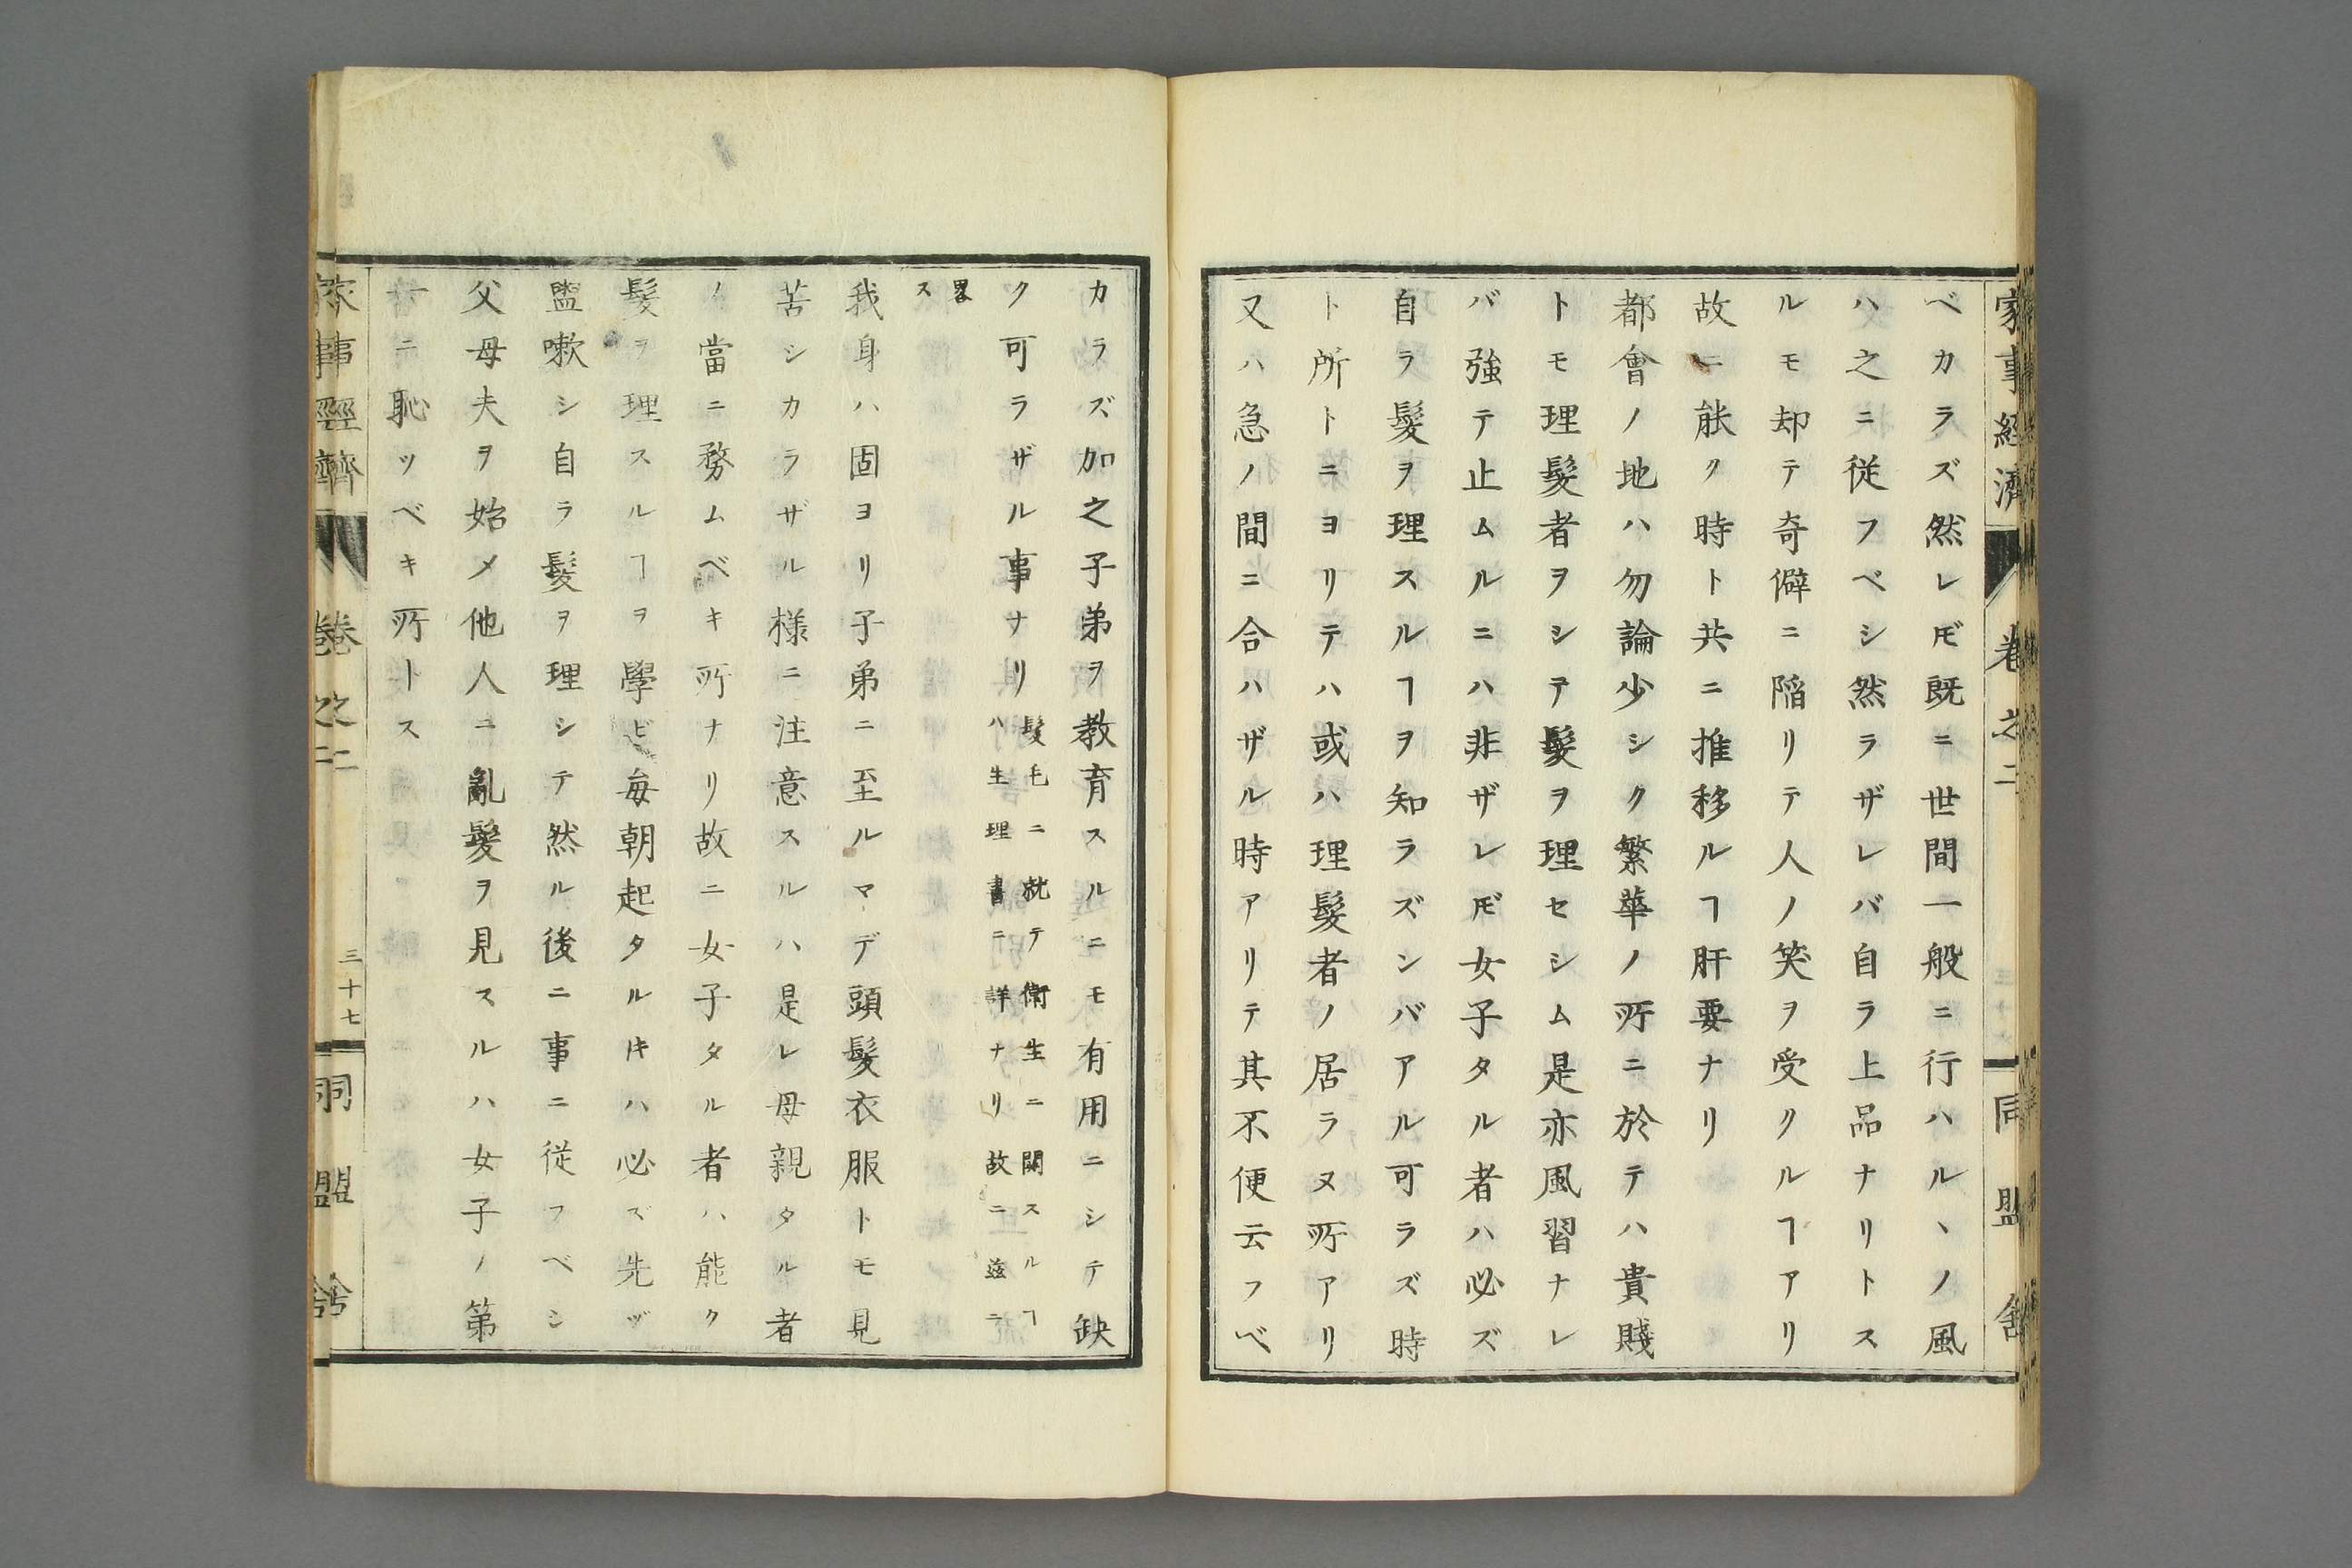 家事經濟 卷之二 同盟舎
ベカラズ然レ𪜈既ニ世間一般ニ行ハルヽノ風
ハ之ニ従フベシ然ラザレバ自ラ上品ナリトス
ルモ却テ奇僻ニ陥リテ人ノ笑ヲ受クルヿアリ
故ニ能ク時ト共ニ推移ルヿ肝要ナリ
都會ノ地ハ勿論少シク繁華ノ所ニ於テハ貴賤
トモ理髮者ヲシテ髮ヲ理セシム是亦風習ナレ
バ強テ止ムルニハ非ザレ𪜈女子タル者ハ必ズ
自ラ髮ヲ理スルヿヲ知ラズンバアル可ラズ時
ト所トニヨリテハ或ハ理髮者ノ居ラヌ所アリ
又ハ急ノ間ニ合ハザル時アリテ其不便云フベ
カラズ加之子弟ヲ教育スルニモ有用ニシテ缺
ク可ラザル事ナリ
髮毛ニ就テ衛生ニ關スルヿ
ハ生理書ニ詳ナリ故ニ茲ニ
畧
ス
我身ハ固ヨリ子弟ニ至ルマデ頭髮衣服トモ見
苦シカラザル様ニ注意スルハ是レ母親タル者
ノ當ニ務ムベキ所ナリ故ニ女子タル者ハ能ク
髮ヲ理スルヿヲ學ビ毎朝起タル𪜈ハ必ズ先ヅ
盥嗽シ自ラ髮ヲ理シテ然ル後ニ事ニ従フベシ
父母夫ヲ始メ他人ニ亂髮ヲ見スルハ女子ノ第
一ニ恥ヅベキ所トス
家事經濟 卷之二 三十七 同盟舎